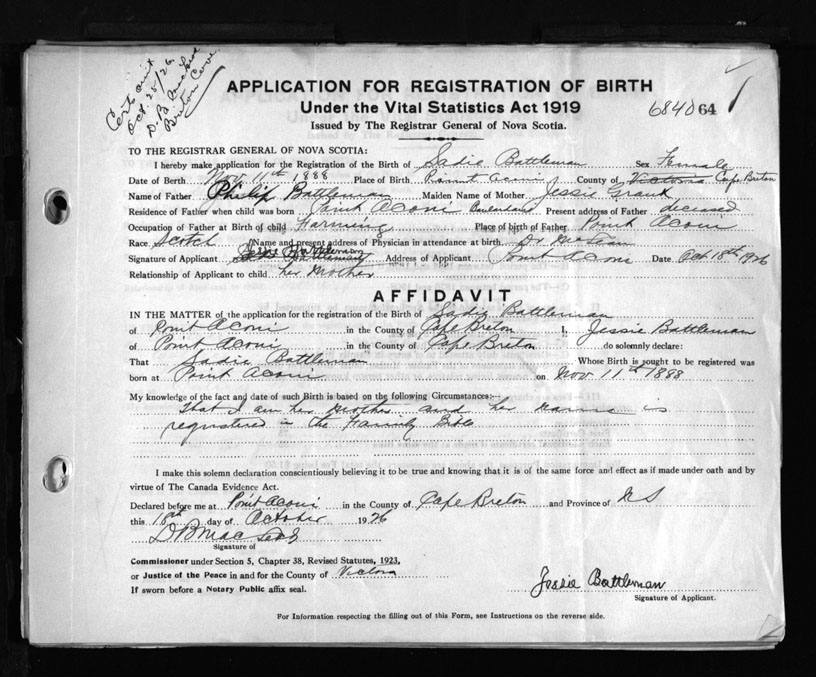 Cert
Oct. 25/26
D. B.
Breton Cove
APPLICATION FOR REGISTRATION OF BIRTH
Under the Vital Statistics Act 1919
684064
Issued by The Registrar General of Nova Scotia.
TO THE REGISTRAR GENERAL OF NOVA SCOTIA:
I hereby make application for the Registration of the Birth of Sadie Battleman Sex Female
Date of Berth Nov 11th 1888 Place of Birth Point Aconi County of Victoria Cape Breton
Name of Father Philip Battleman Maiden Name of Mother Jessie Grant
Residence of Father when child was born Point Aconi Present address of Father deceased
Occupation of Father at Birth of child Farming Place of birth of Father Point Aconi
Race Scotch Name and present address of Physician in attendance at birth Dr
Signature of Applicant Address of Applicant Point Aconi Date Oct 18th 1926
Relationship of Applicant to child her Mother
AFFIDAVIT
IN THE MATTER of the application for the registration of the Birth of Sadie Battleman
of Point Aconi in the County of Cape Breton I, Jessie Battleman
of Point Aconi in the County of Cape Breton do solemnly declare:
That Sadie Battleman Whose Birth is sought to be registered was
born at Point Aconi on Nov 11th 1888
My knowledge of the fact and date of such Birth is based on the following Circumstances:—
That I am her Mother and her name is
registered in the Family Bible
I make this solemn declaration conscientiously believing it to be true and knowing that it is of the same force and effect as if made under oath and by
virtue of The Canada Evidence Act.
Declared before me at Point Aconi in the County of Cape Breton and Province of N S
this 18th day of October 1926
D B Mac
Signature of
Commissioner under Section 5, Chapter 38, Revised Statutes, 1923,
or Justice of the Peace in and for the County of Victoria
If sworn before a Notary Public affix seal.
Jessie Battleman
Signature of Applicant.
For Information respecting the filling out of this Form, see Instructions on the reverse side.